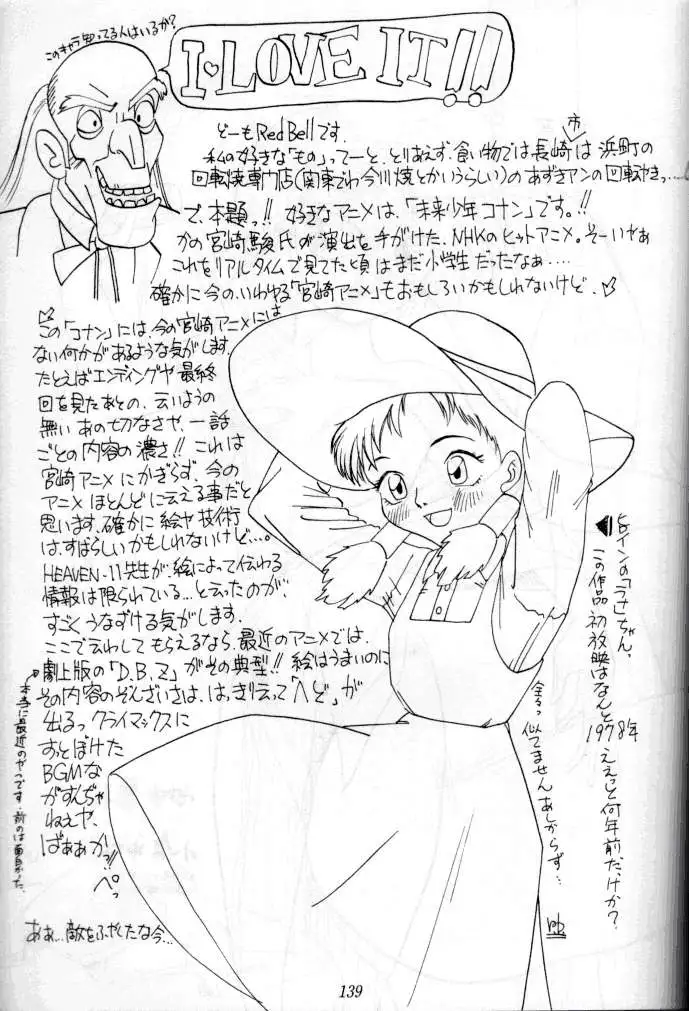 このキャラ知ってる人はいるか?
I♥LOVE IT!!
どーも Red Bellです。
市
私の好きな「もの」ってーと、とりあえず、食い物では長崎は浜町の
回転焼専門店(関東でわ今川焼とかいうらしい)のあずきアンの回転やきっ…
で、本題っ!! 好きなアニメは、「未来少年コナン」です。!!
かの宮崎駿氏が演出を手がけた、NHKのヒットアニメ。そーいやぁ
これをリアルタイムで見てた頃はまだ小学生だったなぁ....
確かに今の、いわゆる「宮崎アニメ」もおもしろいかもしれないけど、
この「コナン」には、今の宮崎アニメには
ない何かがあるような気がします。
たとえばエンディングや最終
回を見たあとの、云いようの
無いあの切なさや、一話
ごとの内容の濃さ!! これは
宮崎アニメにかぎらず、今の
アニメほとんどに云える事だと
思います。確かに絵や技術
は、すばらしいかもしれないけど…。
HEAVEN-11先生が、絵によって伝わる
情報は限られている…と云ったのが、
すごくうなずける気がします。
ここで云わしてもらえるなら、最近のアニメでは、
劇上版の「D.B.Z」がその典型!! 絵はうまいのに
その内容のぞんざいさは、はっきり云って「へど」が
出るっ クライマックスに
すっとぼけた
BGMな
がすんぢゃ
ねぇヤ、
ばぁぁかっ!!
ペっ
本当に最近のやつです。前のは面白かった。
あぁ…敵をふやしたな今…
ヒロインの「ラナ」ちゃん。
この作品、初放映はなんと1978年
ええっと何年前だっけか?
余りっ 似てません あしからず…
139